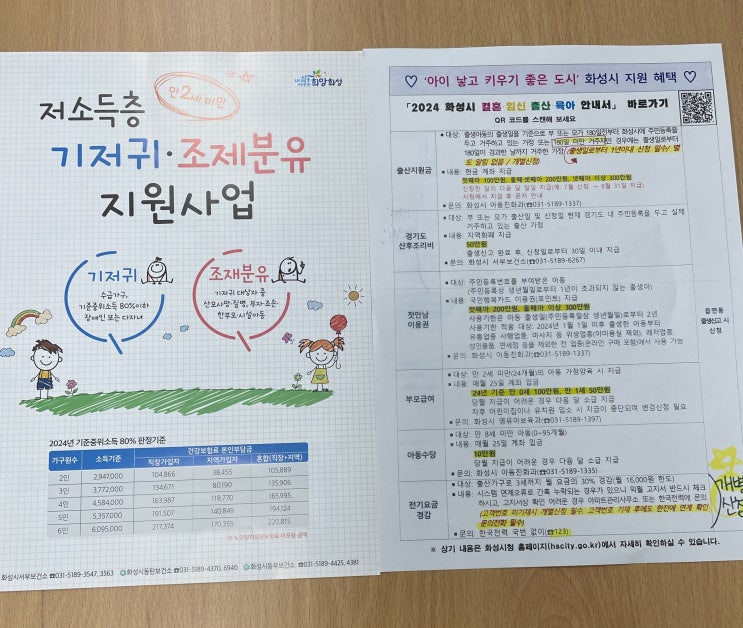 만2세 미만
희망화성
저소득층
기저귀·조제분유
지원사업
기저귀
수급가구,
기준중위소득 80%이하
장애인 또는 다자녀
조제분유
기저귀 대상자 중
산모사망·질병, 부자·조손·
한부모·시설아동
2024년 기준중위소득 80% 판정기준
가구원수 소득기준 건강보험료 본인부담금
직장가입자 지역가입자 혼합(직장+지역)
2인 2,947,000 104,866 38,455 105,889
3인 3,772,000 134,671 80,190 135,906
4인 4,584,000 163,987 118,770 165,995
5인 5,357,000 191,507 140,849 194,124
6인 6,095,000 217,374 170,355 220,815
※ 노인장기요양보험료 미포함 금액
화성시서부보건소 ☎031-5189-3547, 3563 화성시동탄보건소 ☎031-5189-4370, 6940 화성시동부보건소 ☎031-5189-4425, 4381
♡ '아이 낳고 키우기 좋은 도시' 화성시 지원 혜택 ♡
「2024 화성시 결혼 임신 출산 육아 안내서」 바로가기
QR 코드를 스캔해 보세요
출산지원금
▪ 대상: 출생아동의 출생일을 기준으로 부 또는 모가 180일전부터 화성시에 주민등록을
두고 거주하고 있는 가정 또는 180일 미만 거주자인 경우에는 출생일로부터
180일이 경과한 날까지 거주한 가정 (출생일로부터 1년이내 신청 필수/ 별
도 알림 없음 / 개별신청)
▪ 내용: 현금 계좌 지급
첫째아 100만원, 둘째·셋째아 200만원, 넷째아 이상 300만원
신청한 달의 다음 달 말일 지급(예. 7월 신청 → 8월 31일 지급)
시청에서 지급 후 문자 안내
▪ 문의: 화성시 아동친화과(☎031-5189-1337)
경기도
산후조리비
▪ 대상: 부 또는 모가 출산일 및 신청일 현재 경기도 내 주민등록을 두고 실제
거주하고 있는 출산 가정
▪ 내용: 지역화폐 지급
50만원
출생신고 완료 후, 신청일로부터 30일 이내 지급
▪ 문의: 화성시 서부보건소(☎031-5189-6267)
첫만남
이용권
▪ 대상: 주민등록번호를 부여받은 아동
(주민등록상 생년월일로부터 1년이 초과되지 않는 출생아)
▪ 내용: 국민행복카드 이용권(포인트) 지급
첫째아 200만원, 둘째아 이상 300만원
사용기한은 아동 출생일(주민등록상 생년월일)로부터 2년
사용기한 적용 대상: 2024년 1월 1일 이후 출생한 아동부터
유흥업종 사행업종, 마사지 등 위생업종(이미용실 제외), 레저업종,
성인용품, 면세점 등을 제외한 전 업종(온라인 구매 포함)에서 사용 가능
▪ 문의: 화성시 아동친화과(☎031-5189-1337)
읍면동
출생신고 시
신청
부모급여
▪ 대상: 만 2세 미만(24개월)의 아동 가정양육 시 지급
▪ 내용: 매월 25일 계좌 입금
24년 기준 만 0세 100만원, 만 1세 50만원
당월 지급이 어려운 경우 다음 달 소급 지급
차후 어린이집이나 유치원 입소 시 지급이 중단되며 변경신청 필요
▪ 문의: 화성시 영유아보육과
아동수당
▪ 대상: 만 8세 미만 아동(0~95개월)
▪ 내용: 매월 25일 계좌 입금
10만원
당월 지급이 어려운 경우 다음 달 소급 지급
▪ 문의: 화성시 아동친화과(☎031-5189-1335)
전기요금
경감
▪ 대상: 출산가구로 3세까지 월 요금의 30% 경감(월 16,000원 한도)
▪ 내용: 시스템 연계오류로 간혹 누락되는 경우가 있으니 익월 고지서 반드시 체크
하시고, 고지서상 확인 어려운 경우 아파트관리사무소 또는 한국전력에 문의
(고객번호 미기재시 개별신청 필수, 고객번호 기재 후에도 한전에 연계 확인
문의전화 필수)
▪ 문의: 한국전력 국번 없이(☎123)
개별
신청
※ 상기 내용은 화성시청 홈페이지(hscity.go.kr)에서 자세히 확인하실 수 있습니다.